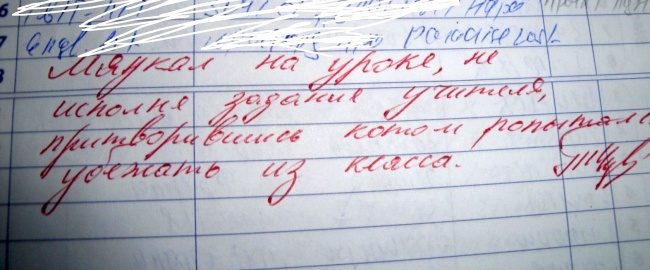 Мяукал на уроке, не
исполня задания учителя,
притворившись котом попытался
убежать из класса.